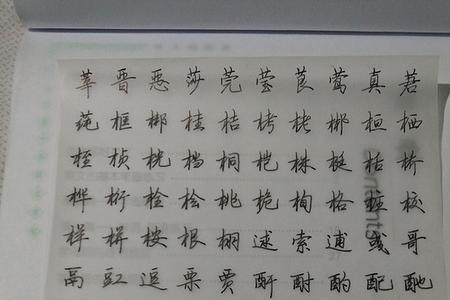 莘晋恶莎莞莹莨莺真莙
莼框梆桂桔栲栳郴桓栖
桎桢桄档桐桤株梃栝桥
桦桁栓桧桃桅栒格桩校
样栟桉根栩逑索逋彧哥
鬲豇逗栗贾酐酎酌配酏